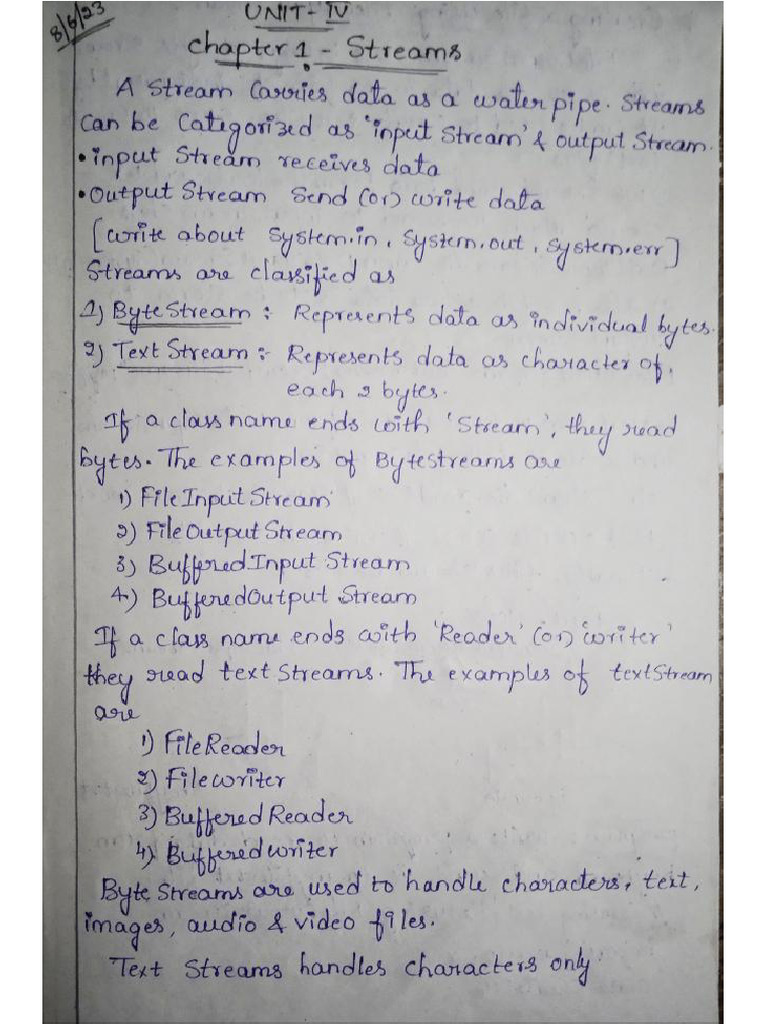 8/6/23
UNIT-IV
Chapter 1 - Streams
A Stream Carries data as a water pipe. Streams
can be Categorized as 'input Stream' & output Stream.
• input Stream receives data
• Output Stream Send (or) write data
[write about System.in, System.out, System.err]
Streams are classified as
1) Byte Stream : Represents data as individual bytes.
2) Text Stream :- Represents data as character of,
each 2 bytes.
If a class name ends with 'Stream', they read
bytes. The examples of Bytestreams are
1) FileInputStream
2) FileOutputStream
3) BufferedInput Stream
4) BufferedOutput Stream
If a class name ends with 'Reader' (or) 'writer'
they read text Streams. The examples of textStream
are
1) FileReader
2) Filewriter
3) Buffered Reader
4) Bufferedwriter
Byte Streams are used to handle characters, text,
images, audio & video files.
Text Streams handles characters only